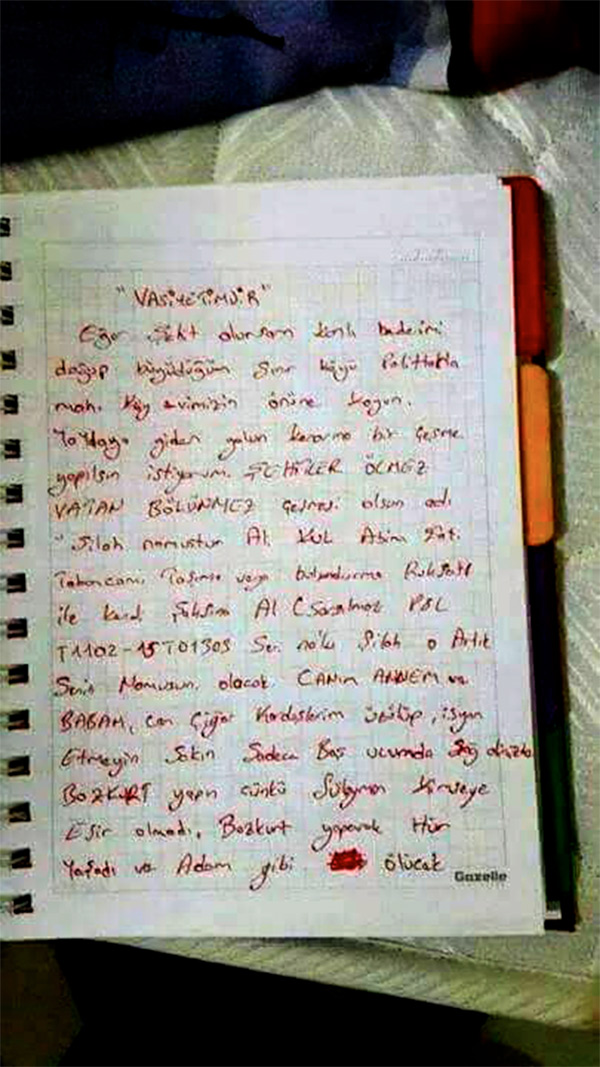 "VASİYETİMDİR"
Eğer Şehit olursam kanlı bedenimi
doğup büyüdüğüm Sınır köyü
mah. Köy evimizin önüne koyun.
Yaylaya giden yolun kenarına bir çeşme
yapılsın istiyorum. ŞEHİTLER ÖLMEZ
VATAN BÖLÜNMEZ Çeşmesi olsun adı
"Silah namustur Al Kul
Tabancamı Taşıma veya bulundurma Ruhsatı
ile Kendi Al (Sarsılmaz
T1102-15T01303 Seri no'lu Silah o Artık
Senin Namusun olacak CANIM ANNEM ve
BABAM, can Ciğer Kardaşlarım üzülüp, isyan
Etmeyin Sakın Sadece Baş ucumda
BOZKURT yapın çünkü Süleyman kimseye
Esir olmadı. Bozkurt yaparak Hür
Yaşadı ve Adam gibi ölücek
Gazelle